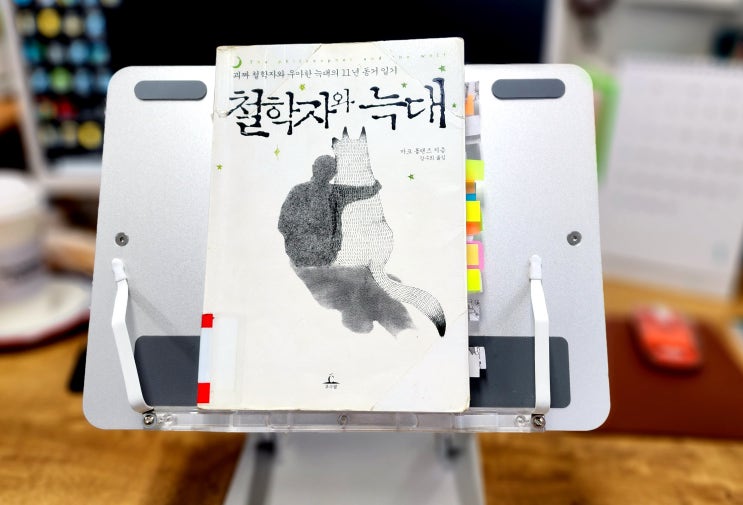 The philosopher and the wolf
괴짜 철학자와 우아한 늑대의 11년 동거 일기
철학자와 늑대
마크 롤랜즈 지음
강수희 옮김
추수밭